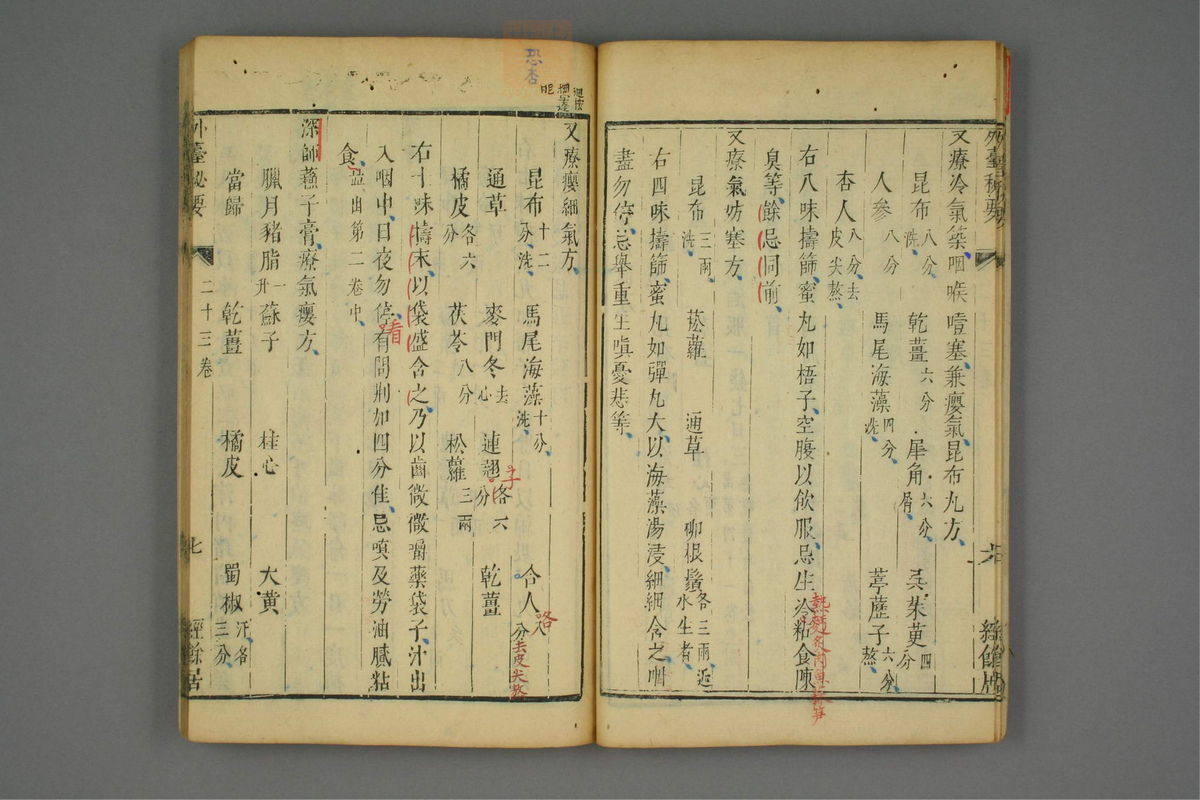 外臺秘要
又療冷氣築咽喉噎塞兼癭氣昆布丸方
昆布八分洗 乾薑六分 犀角六分屑 吳茱萸四分
人參八分 馬尾海藻四分洗 葶藶子六分熬
杏人八分去皮尖熬
右八味擣篩蜜丸如梧子空腹以飲服忌生冷粘食陳
熱麵炙肉
臭等餘忌同前
又療氣妨塞方
昆布三兩洗 菘蘿 通草 柳根鬚各三兩近水生者
右四味擣篩蜜丸如彈丸大以海藻湯浸細細含之咽
盡勿停忌舉重生嗔憂悲等
經餘居
恐杏
又療癭細氣方
昆布十二分洗 馬尾海藻十分洗 合人八分去皮尖熬
通草 麥門冬去心 連翹各六分 乾薑
子
橘皮各六分 茯苓八分 松蘿三兩
右十味擣末以袋盛含之乃以齒微微嚼藥袋子汁出
入咽中日夜勿停有問荆加四分佳忌嗔及勞油膩粘
看
食並出第二卷中
深師蘓子膏療氣癭方
臘月猪脂一升 蘇子 桂心 大黃
當歸 乾薑 橘皮 蜀椒汗各三分
外臺秘要 二十三卷 七 經餘居